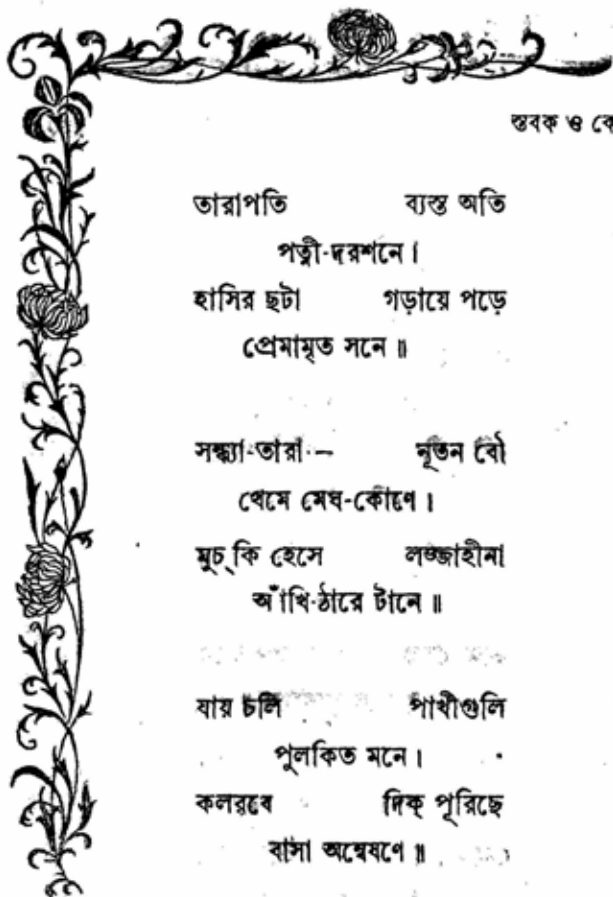 স্তবক ও কে
তারাপতি ব্যস্ত অতি
পত্নী-দরশনে।
হাসির ছটা গড়ায়ে পড়ে
প্রেমামৃত সনে॥
সন্ধ্যা-তারা— নূতন বৌ
থেমে মেঘ-কোণে।
মুচ্‌কি হেসে লজ্জাহীনা
আঁখি-ঠারে টানে॥
যায় চলি পাখীগুলি
পুলকিত মনে।
কলরবে দিক্ পূরিছে
বাসা অন্বেষণে॥